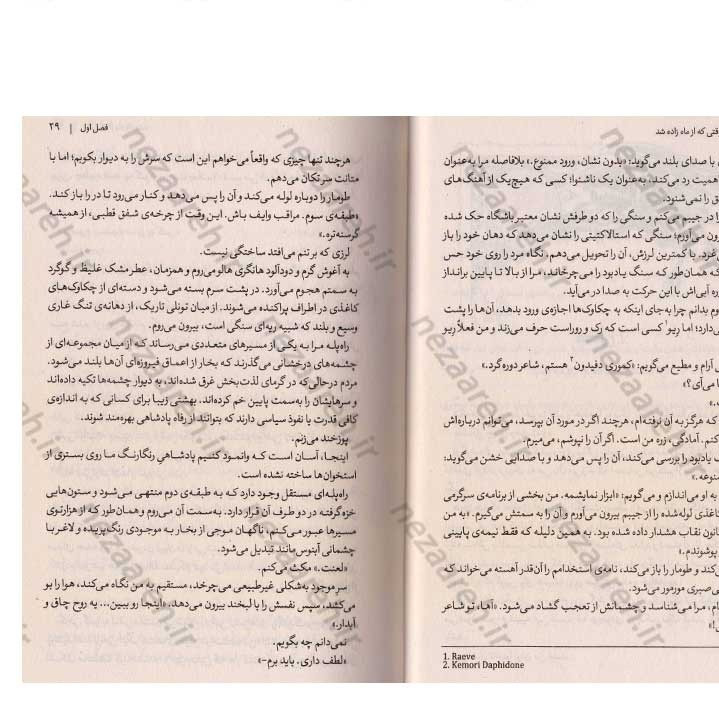 وقتی که از ماه زاده شد
با صدای بلند می‌گوید: «بدون نشان، ورود ممنوع.» بلافاصله مرا به‌عنوان
اهمیت رد می‌کند، به‌عنوان یک ناشنوا؛ کسی که هیچ‌یک از آهنگ‌های
را نمی‌شنود.
را در جیبم می‌کنم و سنگی را که دو طرفش نشان معتبر باشگاه حک شده
می‌آورم؛ سنگی که استالاکتیتی را نشان می‌دهد که دهان خود را باز
با کمترین لرزش، آن را تحویل می‌دهم، نگاه مرد را روی خود حس
که همان‌طور که سنگ یادبود را می‌چرخاند، مرا از بالا تا پایین برانداز
آبی‌اش با این حرکت به صدا در می‌آید.
بدانم چرا به‌جای اینکه به چکاوک‌ها اجازه‌ی ورود بدهد، آن‌ها را پشت
دارد؛ اما ریو۱ کسی است که رک و روراست حرف می‌زند و من فعلاً ریو
آرام و مطیع می‌گویم: «کموری دفیدون۲ هستم، شاعر دوره‌گرد.»
می‌آی؟»
که هرگز به آن نرفته‌ام، هرچند اگر در مورد آن بپرسد، می‌توانم درباره‌اش
کنم. آمادگی، زره من است. اگر آن را نپوشم، می‌میرم.
یادبود را بررسی می‌کند، آن را پس می‌دهد و با صدایی خشن می‌گوید:
به او می‌اندازم و می‌گویم: «ابزار نمایشمه. من بخشی از برنامه‌ی سرگرمی
کاغذی لوله‌شده را از جیبم بیرون می‌آورم و آن را به سمتش می‌گیرم. «به من
قانون نقاب هشدار داده شده بود. به همین دلیله که فقط نیمه‌ی پایینی
پوشوندم.»
و طومار را باز می‌کند، نامه‌ی استخدامم را آن‌قدر آهسته می‌خواند که
صبری مورمور می‌شود.
مرا می‌شناسد و چشمانش از تعجب گشاد می‌شود. «آها، تو شاعر
1. Raeve
2. Kemori Daphidone
فصل اول | ۲۹
هرچند تنها چیزی که واقعاً می‌خواهم این است که سرش را به دیوار بکوبم؛ اما با
متانت سر تکان می‌دهم.
طومار را دوباره لوله می‌کند و آن را پس می‌دهد و کنار می‌رود تا در را باز کند.
«طبقه‌ی سوم. مراقب وایف باش. این وقت از چرخه‌ی شفق قطبی، از همیشه
گرسنه‌تره.»
لرزی که بر تنم می‌افتد ساختگی نیست.
به آغوش گرم و دودآلود هانگری هالو می‌روم و همزمان، عطر مشک غلیظ و گوگرد
به سمتم هجوم می‌آورد. در پشت سرم بسته می‌شود و دسته‌ای از چکاوک‌های
کاغذی در اطراف پراکنده می‌شوند. از میان تونلی تاریک، از دهانه‌ی تنگ غاری
وسیع و بلند که شبیه ریه‌ای سنگی است، بیرون می‌روم.
راه‌پله مرا به یکی از مسیرهای متعددی می‌رساند که از میان مجموعه‌ای از
چشمه‌های درخشانی می‌گذرند که بخار از اعماق فیروزه‌ای آن‌ها بلند می‌شود.
مردم درحالی‌که در گرمای لذت‌بخش غرق شده‌اند، به دیوار چشمه‌ها تکیه داده‌اند
و سرهایشان را به‌سمت پایین خم کرده‌اند. بهشتی زیبا برای کسانی که به اندازه‌ی
کافی قدرت یا نفوذ سیاسی دارند که بتوانند از رفاه پادشاهی بهره‌مند شوند.
پوزخند می‌زنم.
اینجا، آسان است که وانمود کنیم پادشاهیِ رنگارنگ ما روی بستری از
استخوان‌ها ساخته نشده است.
راه‌پله‌ای مستقل وجود دارد که به طبقه‌ی دوم منتهی می‌شود و ستون‌هایی
خزه‌گرفته در دو طرف آن قرار دارد. به‌سمت آن می‌روم و همان‌طور که از هزارتوی
مسیرها عبور می‌کنم، ناگهان موجی از بخار به موجودی رنگ‌پریده و لاغر با
چشمانی آبنوس‌مانند تبدیل می‌شود.
«لعنت.» مکث می‌کنم.
سرِ موجود به‌شکلی غیرطبیعی می‌چرخد، مستقیم به من نگاه می‌کند، هوا را بو
می‌کشد، سپس نفسش را با لبخند بیرون می‌دهد. «اینجا رو ببین... یه روح چاق و
آبدار.»
نمی‌دانم چه بگویم.
«لطف داری. باید برم-»
nezaareh.ir